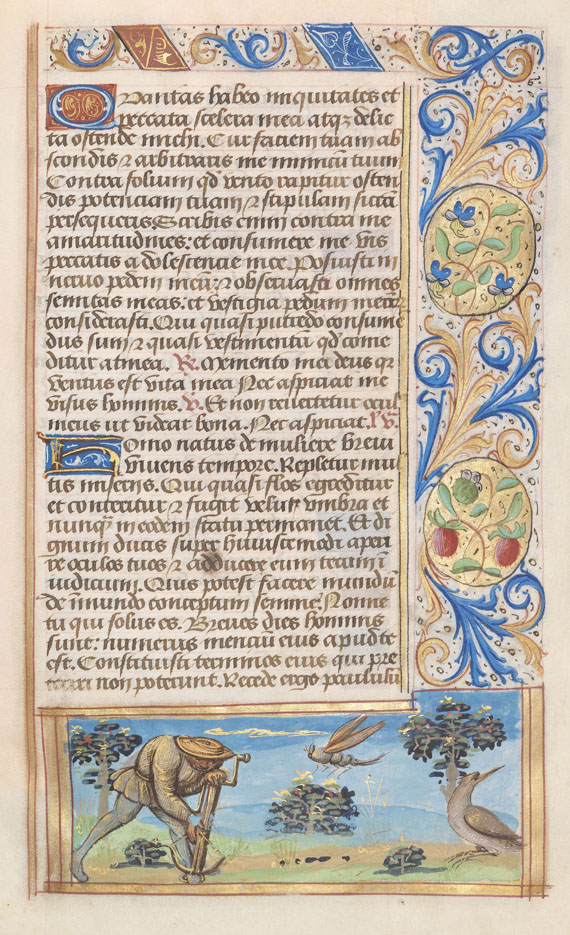 Quantas habeo iniquitates et
peccata scelera mea atqz delic
ta ostende michi. Cur faciem tuam ab
scondis ⁊ arbitraris me inimicu tuum
Contra folium qd vento rapitur osten
dis potenciam tuam ⁊ stipulam sicca
persequeris. Scribis enim contra me
amaritudines: et consumere me vis
peccatis adolescentie mee. Posuisti in
neruo pedem meu: ⁊ obseruasti omnes
semitas meas: et vestigia pedum meor
considerasti. Qui quasi putredo consume
dus sum ⁊ quasi vestimentu qd come
ditur atinea. R. Memento mei deus qr
ventus est vita mea Nec aspiciat me
visus hominis. V. Et non reuertetur ocul
meus ut videat bona. Nec aspiciat.
Homo natus de muliere breui
viuens tempore. Repletur mul
tis miseriis. Qui quasi flos egreditur
et conteritur ⁊ fugit velut vmbra et
nunqz in eodem statu permanet. Et di
gnum ducis super huiuscemodi aperi
re oculos tuos ⁊ adducere eum tecum i
iudicium. Quis potest facere mundu
de inmundo conceptum semine. Nonne
tu qui solus es. Breues dies hominis
sunt: numerus mensiu eius apud te
est. Constituisti terminos eius qui pre
non poterunt. Recede ergo paululu